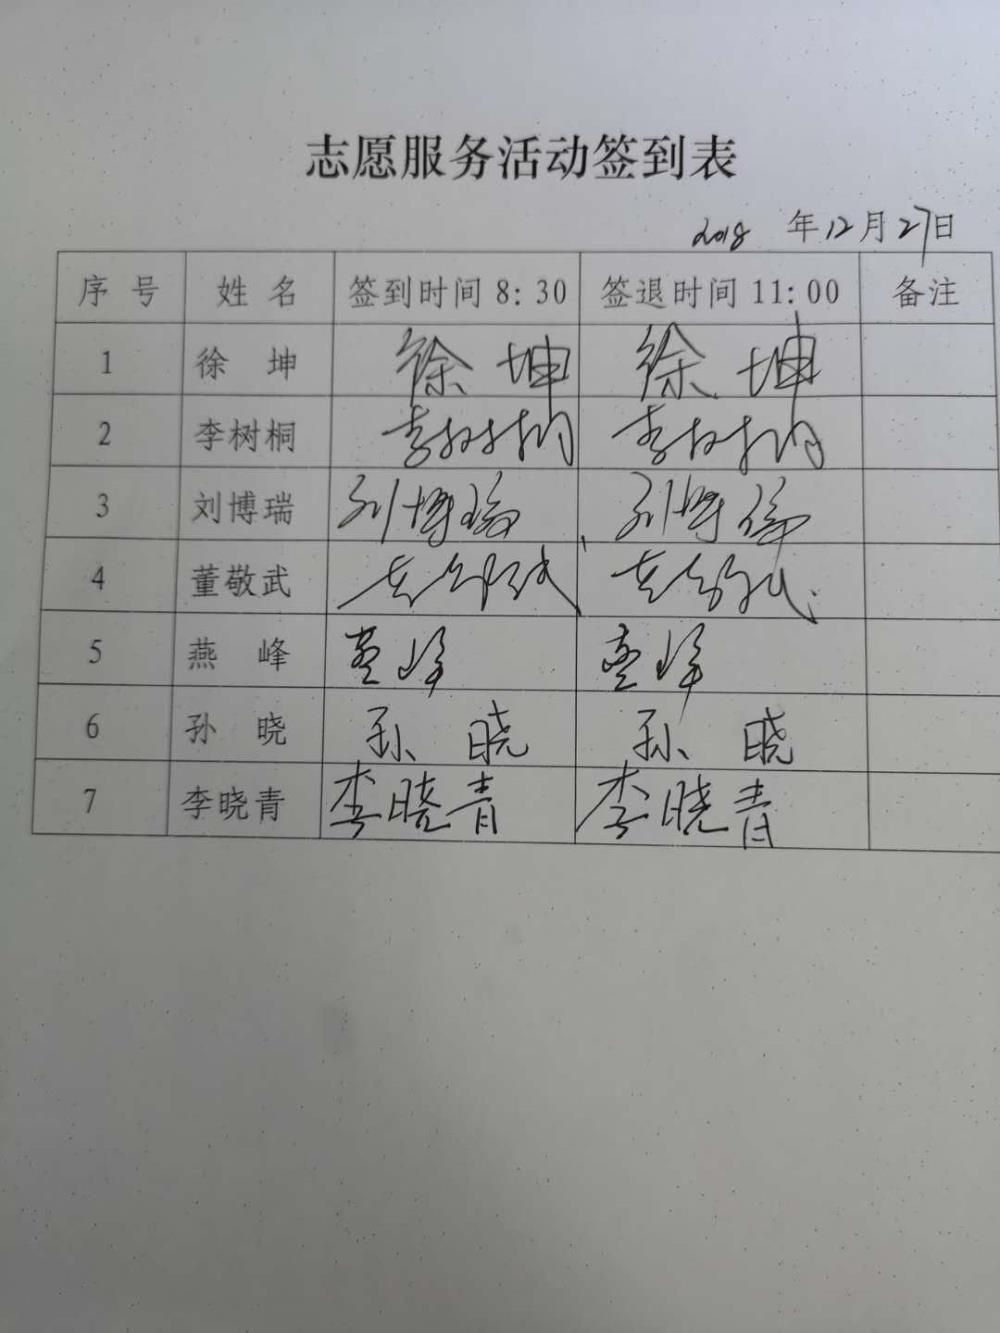 志愿服务活动签到表
2018 年12月27日
序 号 姓 名 签到时间 8:30 签退时间 11:00 备注
1 徐 坤 徐 坤 徐 坤
2 李树桐 李树桐 李树桐
3 刘博瑞 刘博瑞 刘博瑞
4 董敬武 董敬武 董敬武
5 燕 峰 燕峰 燕峰
6 孙 晓 孙 晓 孙 晓
7 李晓青 李晓青 李晓青